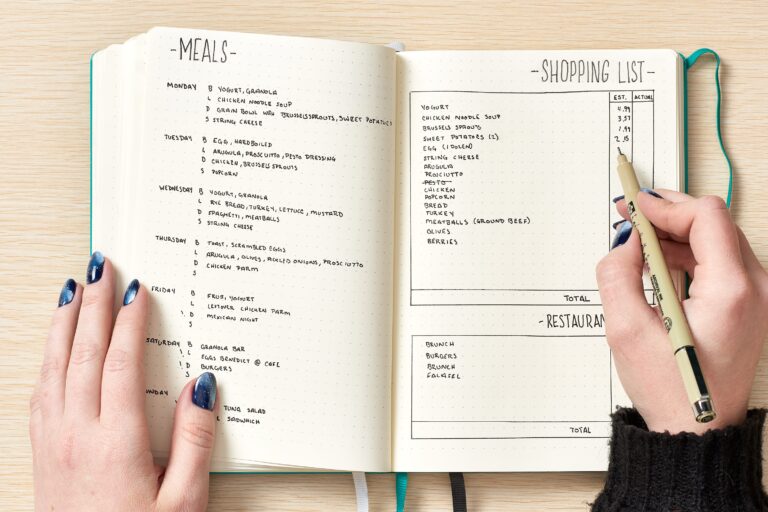 -MEALS-
MONDAY B YOGURT, GRANOLA
L CHICKEN NOODLE SOUP
D GRAIN BOWL W/ BRUSSELSSPROUTS, SWEET POTATOES
S STRING CHEESE
TUESDAY B EGG, HARDBOILED
L ARUGULA, PROSCIUTTO, PESTO DRESSING
D CHICKEN, BRUSSELSSPROUTS
S POPCORN
WEDNESDAY B YOGURT, GRANOLA
L RYE BREAD, TURKEY, LETTUCE, MUSTARD
D SPAGHETTI, MEATBALLS
S STRING CHEESE
THURSDAY B TOAST, SCRAMBLED EGGS
L ARUGULA, OLIVES, PICKLED ONIONS, PROSCIUTTO
D CHICKEN PARM
S
FRIDAY B FRUIT, YOGURT
L LEFTOVER CHICKEN PARM
D MEXICAN NIGHT
S
SATURDAY B GRANOLA BAR
L EGGS BENEDICT @ CAFE
D BURGERS
S
UNDAY
TUNA SALAD
SANDWHICH
-SHOPPING LIST-
EST. ACTUAL
YOGURT 4.99
CHICKEN NOODLE SOUP 3.57
BRUSSELS SPROUTS 1.99
SWEET POTATOES (2) 2.15
EGG (1 DOZEN)
STRING CHEESE
ARUGULA
PROSCIUTTO
PESTO
CHICKEN
POPCORN
BREAD
TURKEY
MEATBALLS (GROUND BEEF)
OLIVES
BERRIES
TOTAL
-RESTAURAN
BRUNCH
BURGERS
BRUNCH
FALAFEL
TOTAL